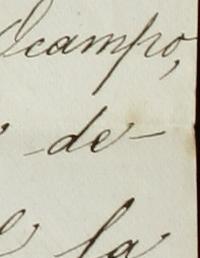 Ocampo,
de-
la